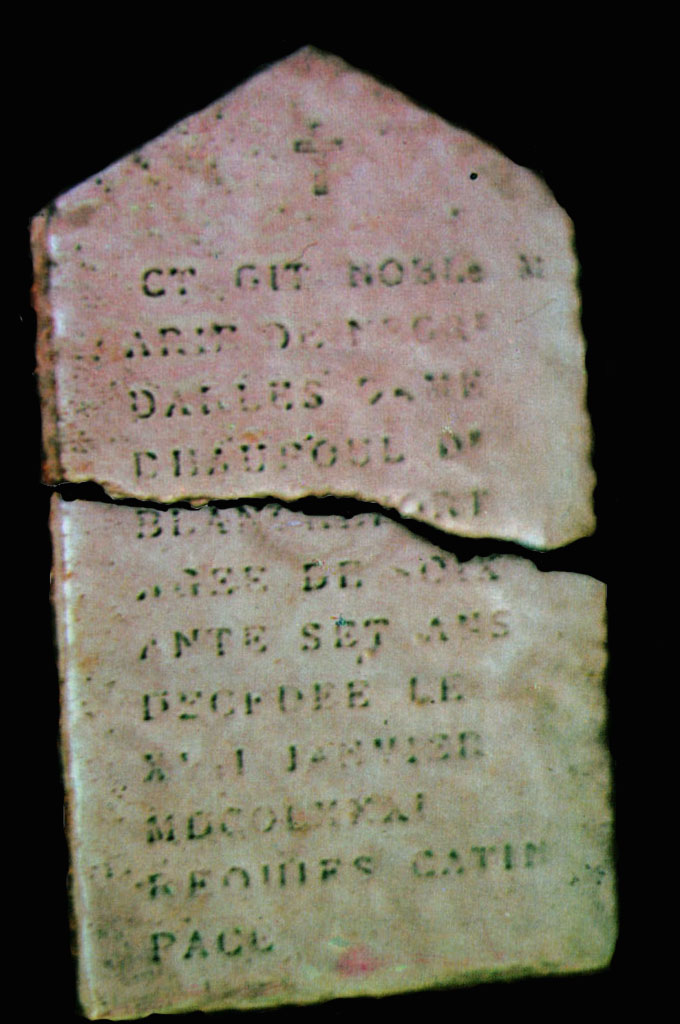 CT GIT NOBLe M
ARIE DE NEGRe
DARLES DAME
DHAUPOUL DE
BLANCHEFORT
AGEE DE SOIX
ANTE SEpT ANS
DECEDEE LE
XVII JANVIER
MDCOLXXXI
REQUIES CATIN
PACE